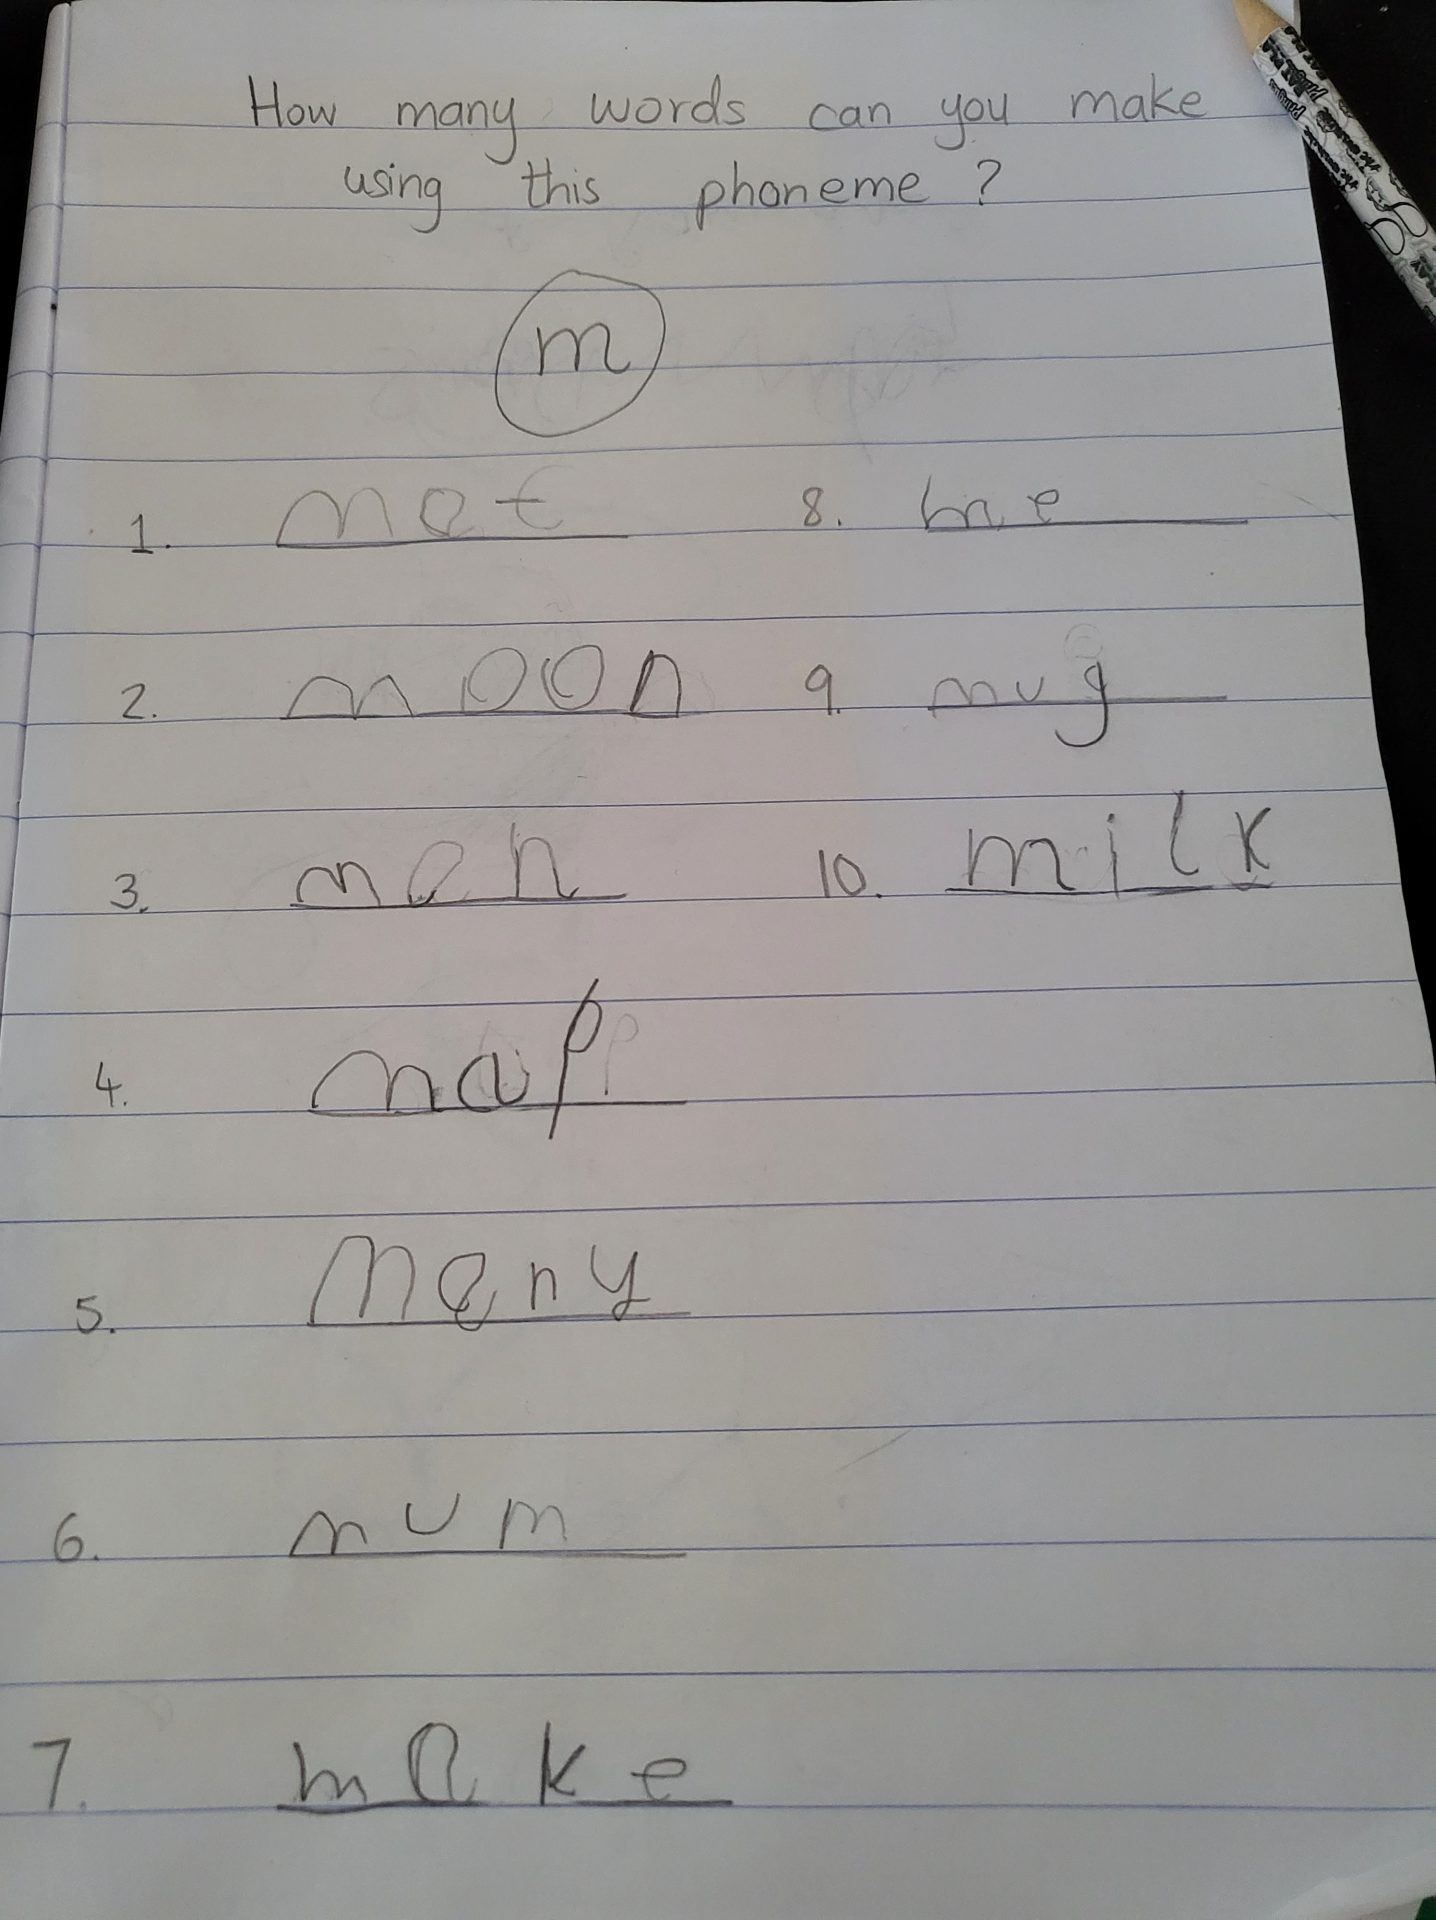 How many words can you make
using this phoneme ?
m
1. mat
2. moon
3. man
4. map
5. many
6. mum
7. make
8. me
9. mug
10. milk